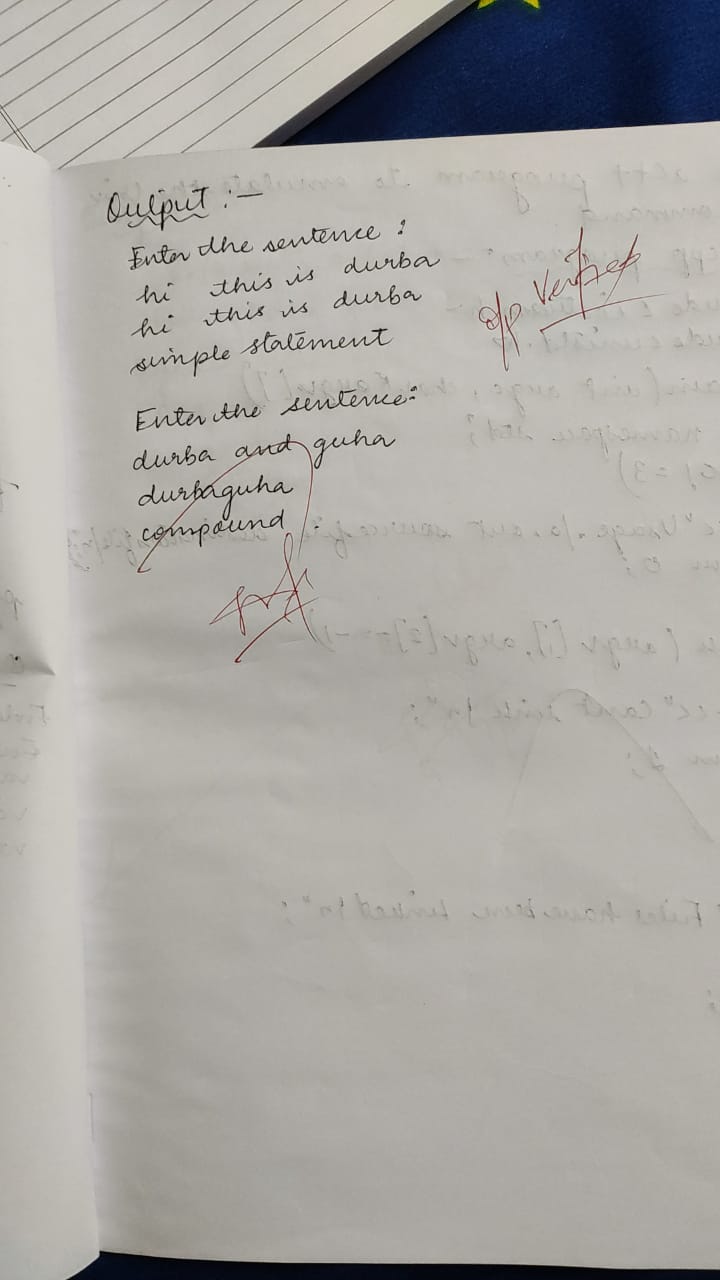 Output :-
Enter the sentence :
hi this is durba
hi this is durba
simple statement
o/p Verified
Enter the sentence:
durba and guha
durbaguha
compound